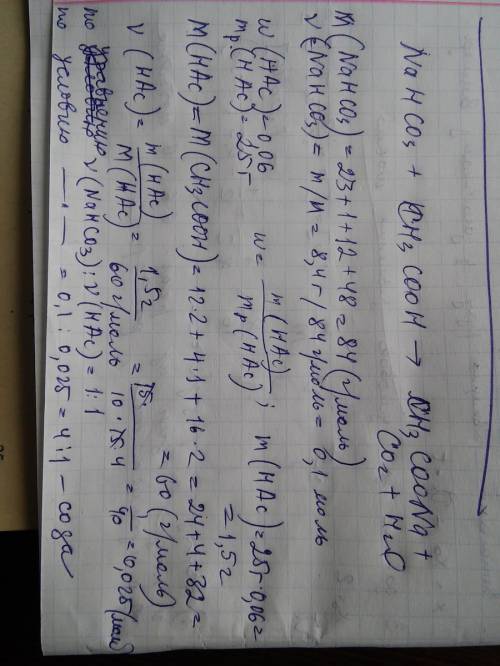 NaHCO3 + CH3COOH → CH3COONa +
CO2 + H2O
M(NaHCO3) = 23+1+12+48 = 84 (г/моль)
ν(NaHCO3) = m/M = 8,4г/84 г/моль = 0,1 моль
w(HAc) = 0,06
mр.(HAc) = 25г
w = m(HAc)/mр(HAc); m(HAc) = 25г·0,06 =
= 1,5г
M(HAc) = M(CH3COOH) = 12·2 + 4·1 + 16·2 = 24+4+32 =
= 60 (г/моль)
ν(HAc) = m(HAc)/M(HAc) = 1,5г/60г/моль = 15/10·15·4 = 1/40 = 0,025 (моль)
по уравнению ν(NaHCO3):ν(HAc) = 1:1
по условию —"— = 0,1:0,025 = 4:1 – сода